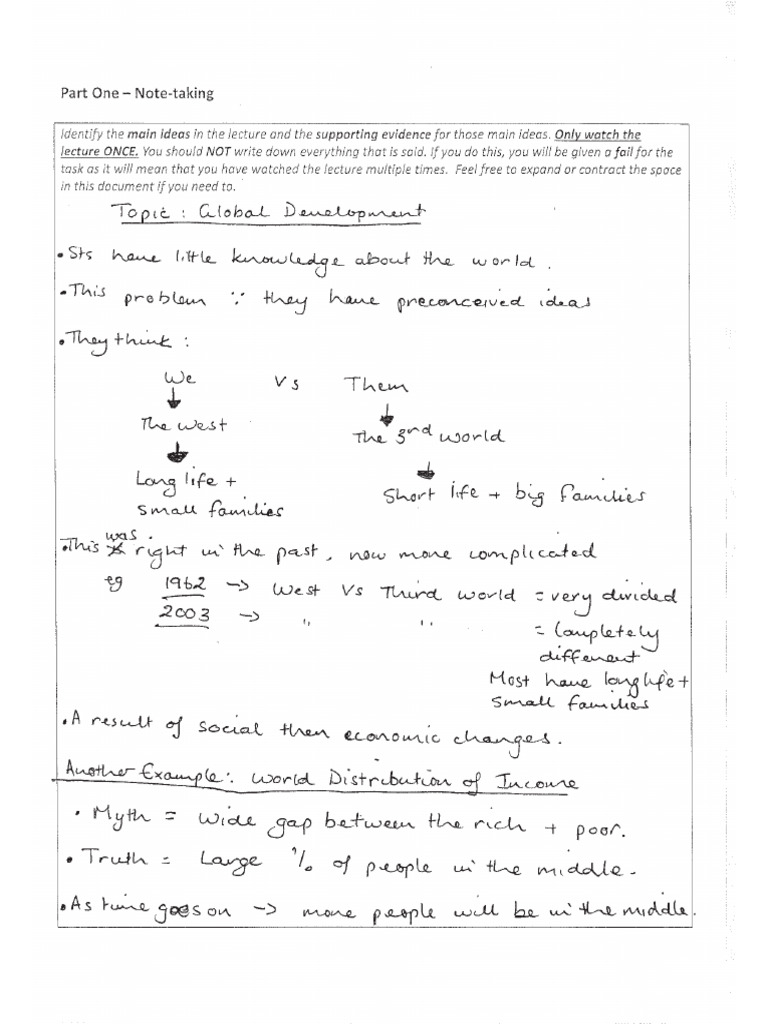 Part One – Note-taking
Identify the main ideas in the lecture and the supporting evidence for those main ideas. Only watch the
lecture ONCE. You should NOT write down everything that is said. If you do this, you will be given a fail for the
task as it will mean that you have watched the lecture multiple times. Feel free to expand or contract the space
in this document if you need to.
Topic : Global Development
• Sts have little knowledge about the world.
• This problem ∵ they have preconceived ideas
• They think :
We Vs Them
The West
The 3rd world
Long life +
small families
Short life + big families
• This was right in the past, now more complicated
eg 1962 → West Vs Third world = very divided
2003 → " " = completely
different
Most have long life +
small families
• A result of social then economic changes.
Another Example: World Distribution of Income
• Myth = wide gap between the rich + poor.
• Truth = Large % of people in the middle.
• As time goes on → more people will be in the middle.